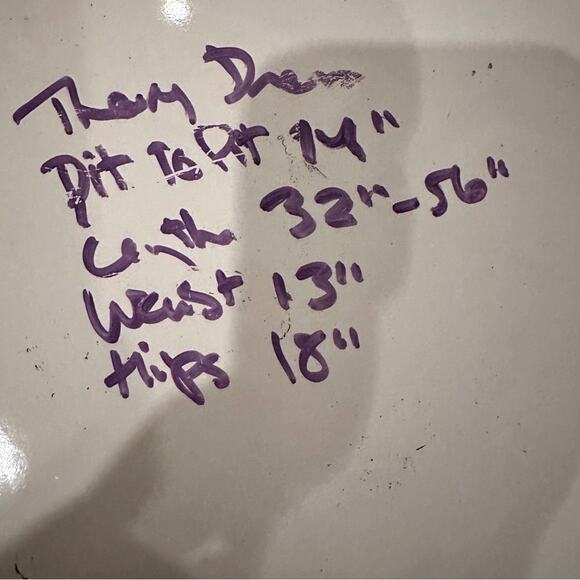 Theory Dress
Pit to Pit 14"
Length 32"-56"
Waist 13"
Hips 18"